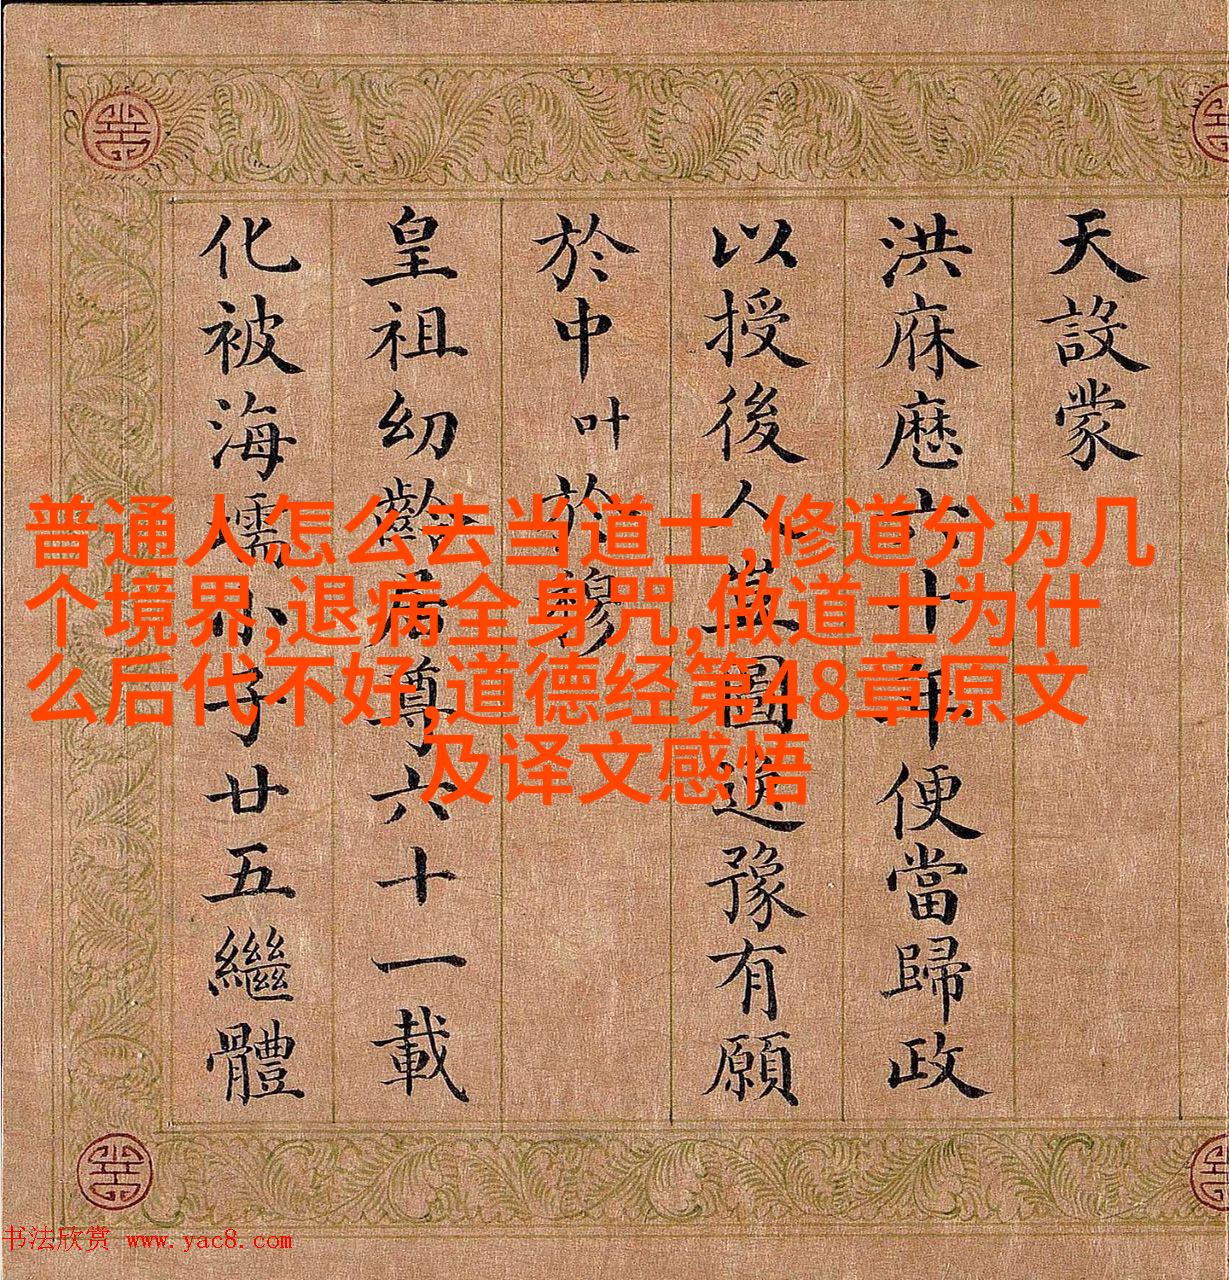 天設蒙
洪庥歷六十年便當歸政
以授後人匣圖遂豫有願
於中叶於穆
皇祖幼齡居尊六十一載
化被海壖小子廿五繼體
普通人怎么去当道士,修道分为几
个境界,退病全身咒,做道士为什
么后代不好,道德经第48章原文
及译文感悟
书法欣赏 www.yac8.com